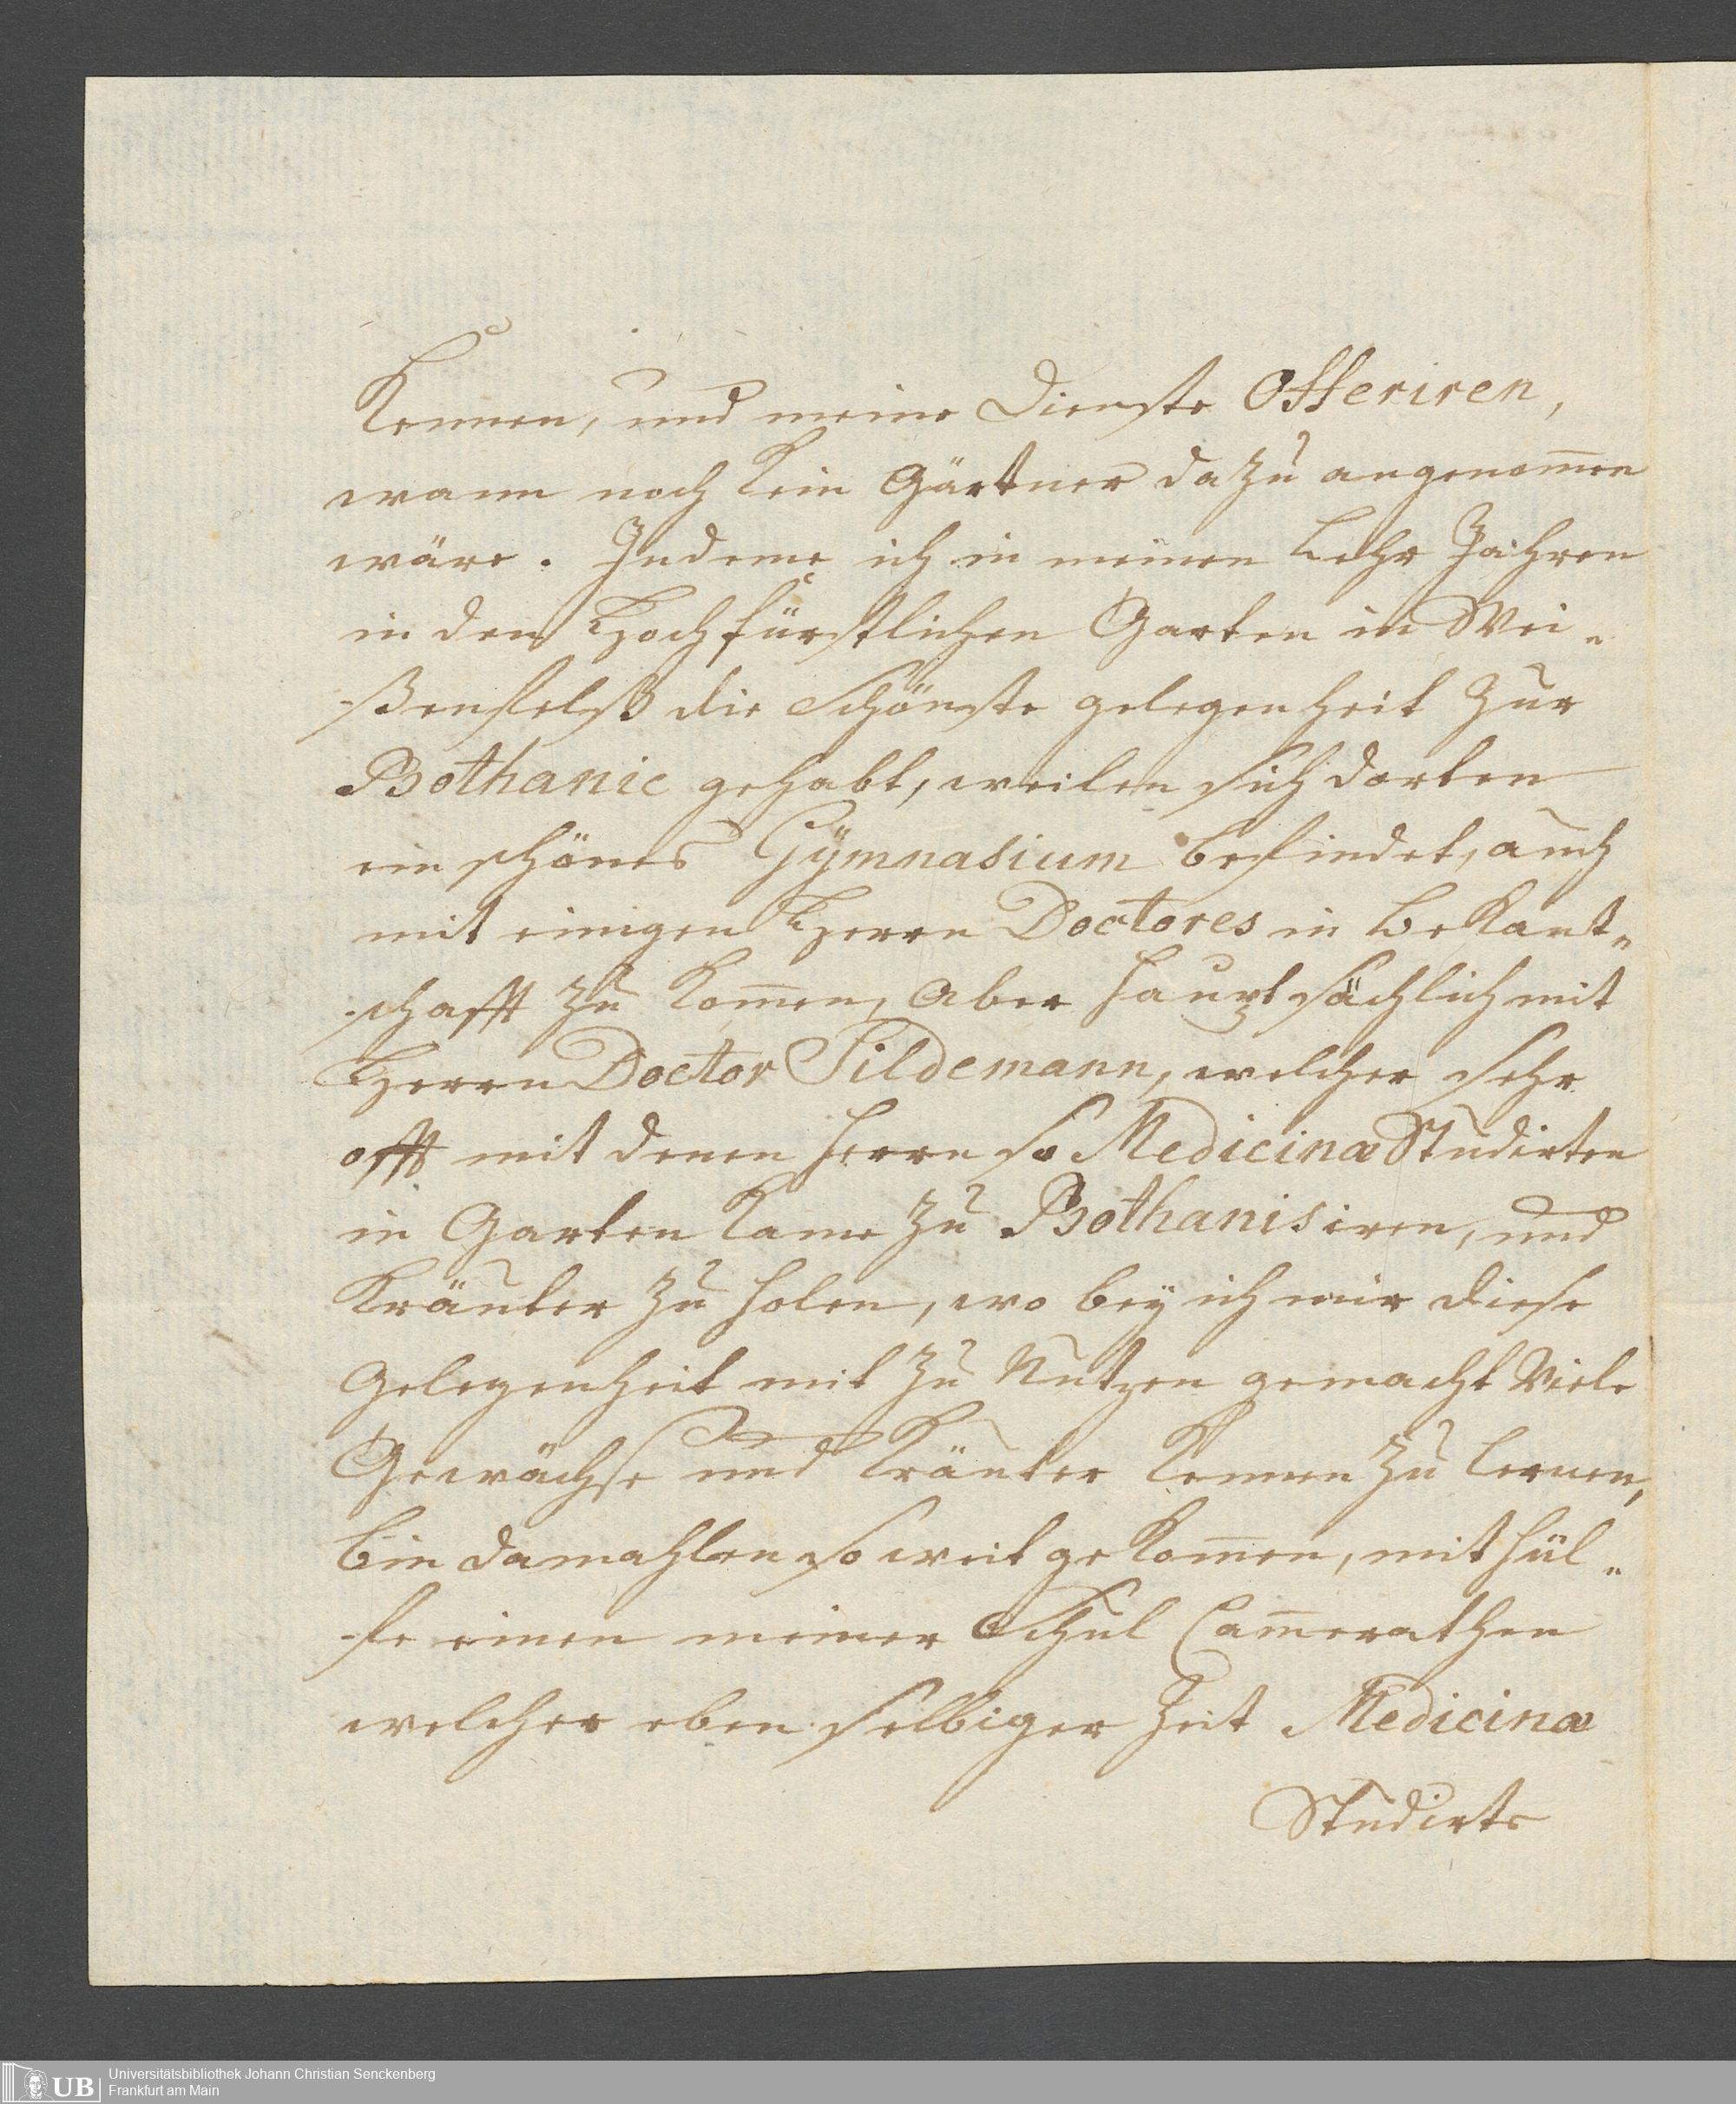 Kennen, und meine Dienste Offeriren,
wann noch kein Gärtner dazu angenom̅en
wäre. Indeme ich in meinen Lehr Jahren
in den Hochfürstlichen Garten in Wei„
ßenfelß die Schönste gelegenheit zur
Bothanic gehabt, weilen sich dorten
ein schönes Gÿmnasium befindet, auch
mit einigen Herren Doctores in Bekant„
schafft zu kom̅en, Aber hauptsächlich mit
Herren Doctor Tildemann, welcher sehr
offt mit denen Herrn so Medicinæ Studirten
in Garten kame zu Bothanisiren, und
Kräuter zu holen, wo beÿ ich mir diese
Gelegenheit mit zu Nutzen gemacht Viele
Gewächse und Kräuter Kennen zu lernen,
bin damahlen so weit gekom̅en, mit hül„
fe einen meiner Schul Cam̅erathen
welcher eben selbiger Zeit Medicinæ
Studirte
Universitätsbibliothek Johann Christian Senckenberg
Frankfurt am Main
UB